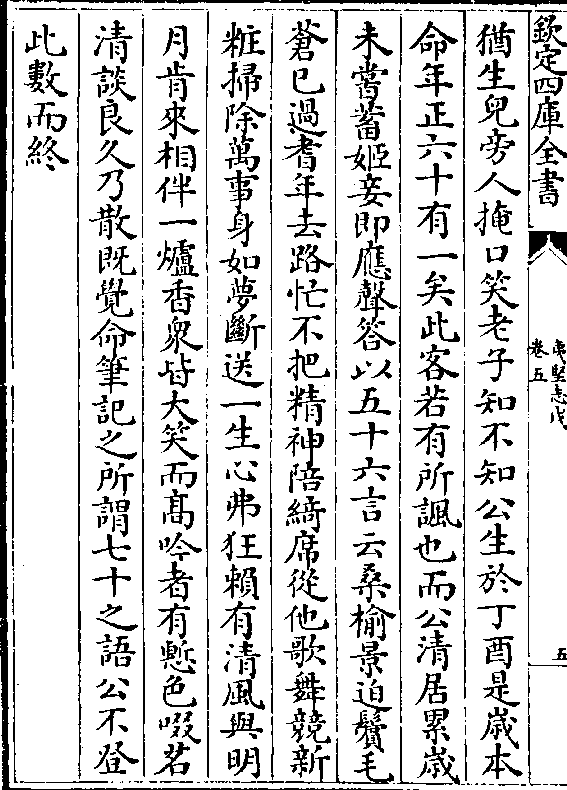 欽定四庫全書
夷堅志戊
卷五
五
猶生兒旁人掩口笑老子知不知公生於丁酉是歲本
命年正六十有一矣此客若有所諷也而公清居累歲
未嘗蓄姬妾即應聲答以五十六言云桑榆景迫鬢毛
蒼已過耆年去路忙不把精神陪綺席從他歌舞競新
粧掃除萬事身如夢斷送一生心弗狂賴有清風與明
月肯來相伴一爐香衆皆大笑而髙吟者有慙色啜茗
清談良久乃散既覺命筆記之所謂七十之語公不登
此數而終